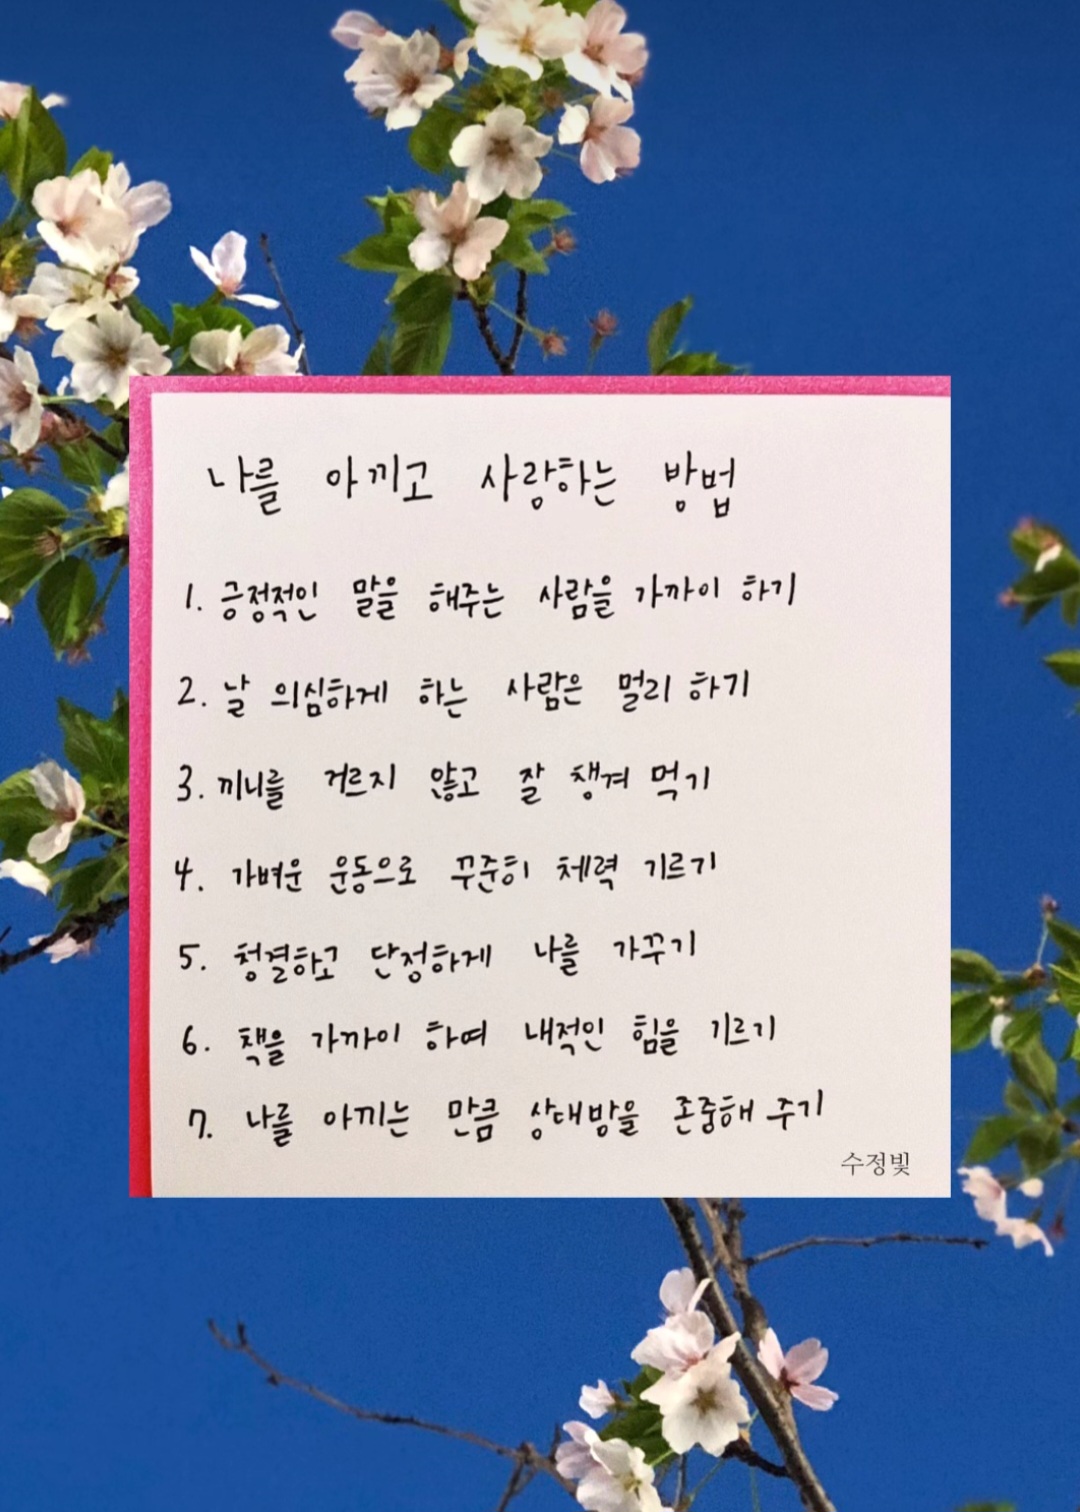 나를 아끼고 사랑하는 방법
1. 긍정적인 말을 해주는 사람을 가까이 하기
2. 날 의심하게 하는 사람은 멀리 하기
3. 끼니를 거르지 않고 잘 챙겨 먹기
4. 가벼운 운동으로 꾸준히 체력 기르기
5. 청결하고 단정하게 나를 가꾸기
6. 책을 가까이 하여 내적인 힘을 기르기
7. 나를 아끼는 만큼 상대방을 존중해 주기
수정빛